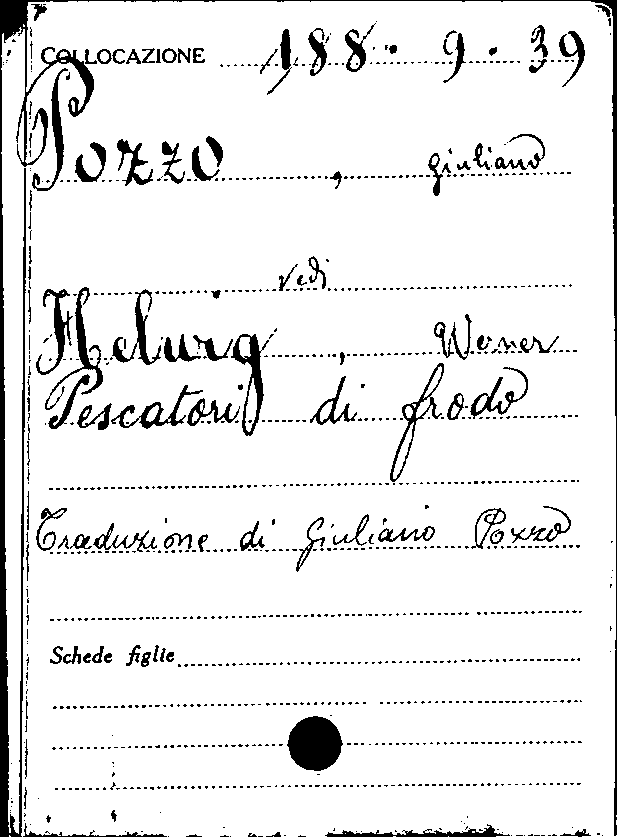 COLLOCAZIONE 188. 9. 39
Pozzo, Giuliano
vedi
Helwig, Werner
Pescatori di frodo
Traduzione di Giuliano Pozzo
Schede figlie